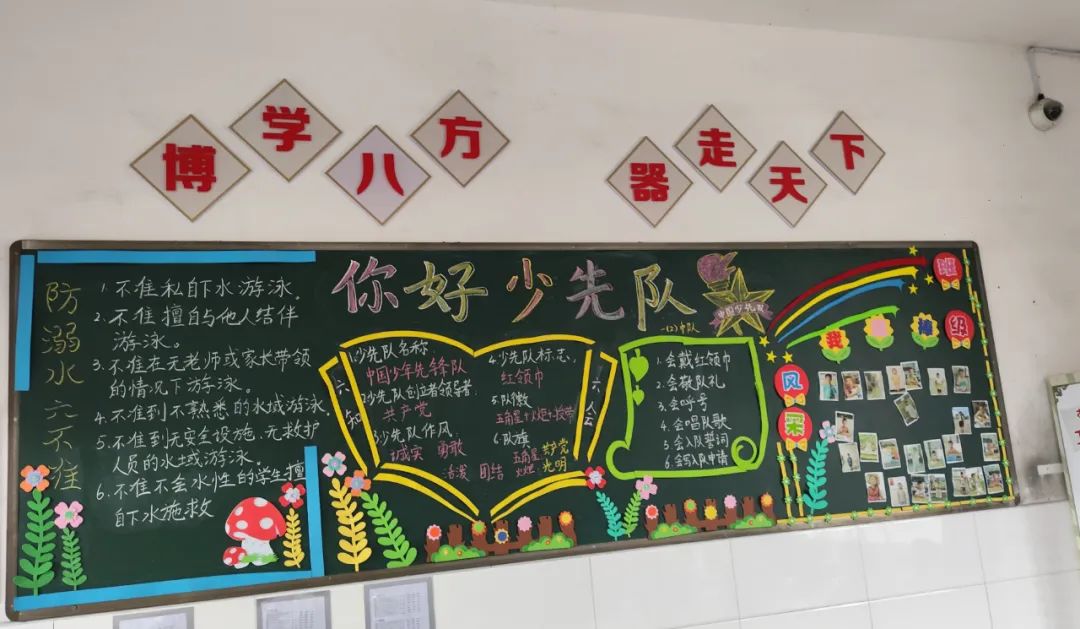 博学八方
器走天下
防溺水六不准
1.不准私自下水游泳。
2.不准擅自与他人结伴
游泳。
3.不准在无老师或家长带领
的情况下游泳。
4.不准到不熟悉的水域游泳
5.不准到无安全设施、无救护
人员的水域游泳
6.不准不会水性的学生擅
自下水施救
你好少先队
中国少年先
一(2)中队
六知
1.少先队名称
中国少年先锋队
2少先队创立者领导者:
共产党
3少先队作风
诚实 勇敢
活泼 团结
4.少先队标志:
红领巾
5.队徽
五角星+火炬+绶带
6.队旗
五角星 共产党
火炬 光明
六会
1.会戴红领巾
2.会敬队礼
3.会呼号
4.会唱队歌
5.会入队誓词
6.会写入队申请
班级
我
风采